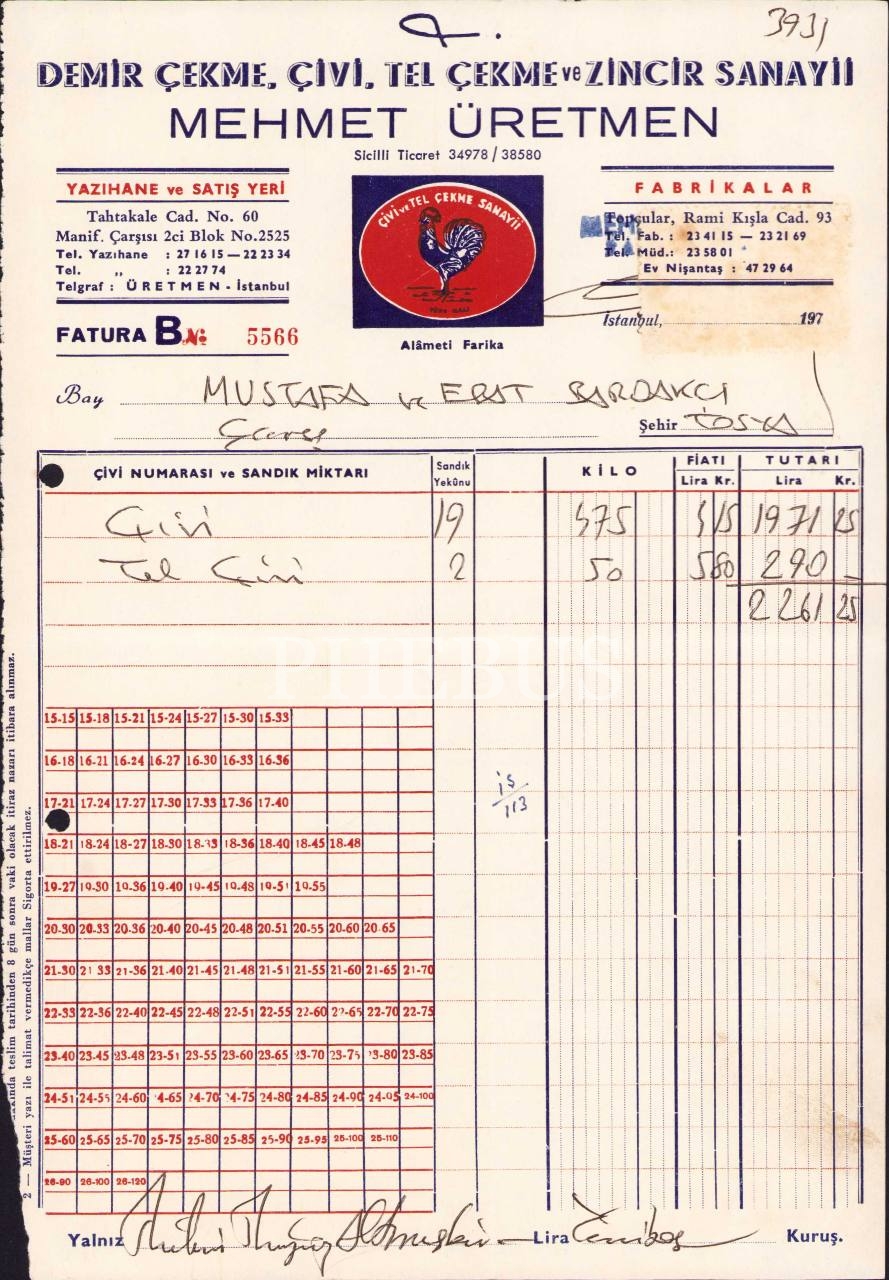 3931
DEMİR ÇEKME, ÇİVİ, TEL ÇEKME ve ZİNCİR SANAYİİ
MEHMET ÜRETMEN
Sicilli Ticaret 34978 / 38580
YAZIHANE ve SATIŞ YERİ
Tahtakale Cad. No. 60
Manif. Çarşısı 2ci Blok No.2525
Tel. Yazıhane : 27 16 15 — 22 23 34
Tel. „ : 22 27 74
Telgraf : ÜRETMEN - İstanbul
ÇİVİ ve TEL ÇEKME SANAYİİ
Alâmeti Farika
FABRİKALAR
Topçular, Rami Kışla Cad. 93
Tel. Fab. : 23 41 15 — 23 21 69
Tel. Müd.: 23 58 01
Ev Nişantaş : 47 29 64
FATURA B No 5566
İstanbul, 197
Bay MUSTAFA ve BARDAKCI
Şehir TOSYA
ÇİVİ NUMARASI ve SANDIK MİKTARI Sandık Yekûnu KİLO FİATI Lira Kr. TUTARI Lira Kr.
Çivi 19 475 415 1971 25
Tel Çivi 2 50 580 290 -
2261 25
PHEBUS
15-15 15-18 15-21 15-24 15-27 15-30 15-33
16-18 16-21 16-24 16-27 16-30 16-33 16-36
17-21 17-24 17-27 17-30 17-33 17-36 17-40
18-21 18-24 18-27 18-30 18-33 18-36 18-40 18-45 18-48
19-27 19-30 19-36 19-40 19-45 19-48 19-51 19-55
20-30 20-33 20-36 20-40 20-45 20-48 20-51 20-55 20-60 20-65
21-30 21 33 21-36 21-40 21-45 21-48 21-51 21-55 21-60 21-65 21-70
22-33 22-36 22-40 22-45 22-48 22-51 22-55 22-60 22-65 22-70 22-75
23-40 23-45 23-48 23-51 23-55 23-60 23-65 23-70 23-75 23-80 23-85
24-51 24-55 24-60 24-65 24-70 24-75 24-80 24-85 24-90 24-95 24-100
25-60 25-65 25-70 25-75 25-80 25-85 25-90 25-95 25-100 25-110
26-90 26-100 26-120
113
Yalnız Lira Kuruş.
teslim tarihinden 8 gün sonra vaki olacak itiraz nazarı itibara alınmaz.
2 — Müşteri yazı ile talimat vermedikçe mallar Sigorta ettirilmez.